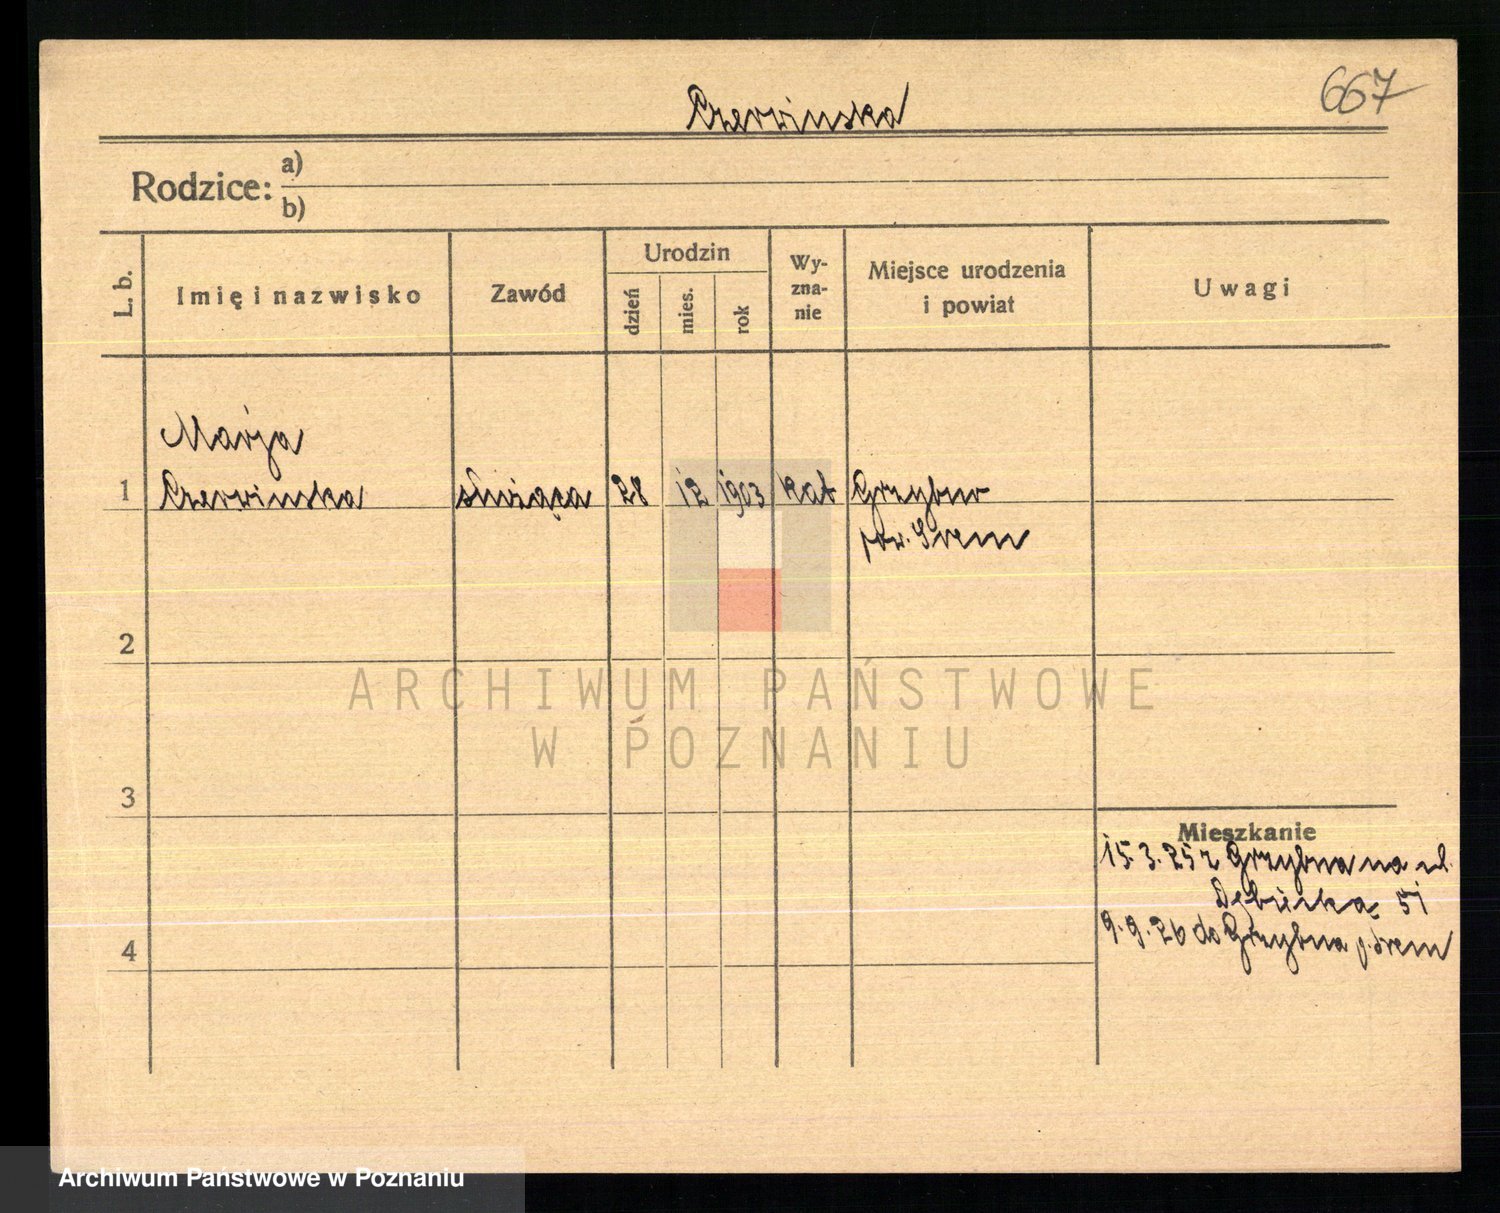 667
Czerwinska
Rodzice: a)
b)
L. b.
Imię i nazwisko
Zawód
Urodzin
dzień
mies.
rok
Wy-
zna-
nie
Miejsce urodzenia
i powiat
Uwagi
Marja
1 Czerwinska służąca 28 12 1903 kat Grzybno
pow. Śrem
2
ARCHIWUM PAŃSTWOWE
W POZNANIU
3
Mieszkanie
15.3.25 z Grzybna na ul.
Dębiecką 51
9.9.26 do Grzybna p. Śrem
4
Archiwum Państwowe w Poznaniu